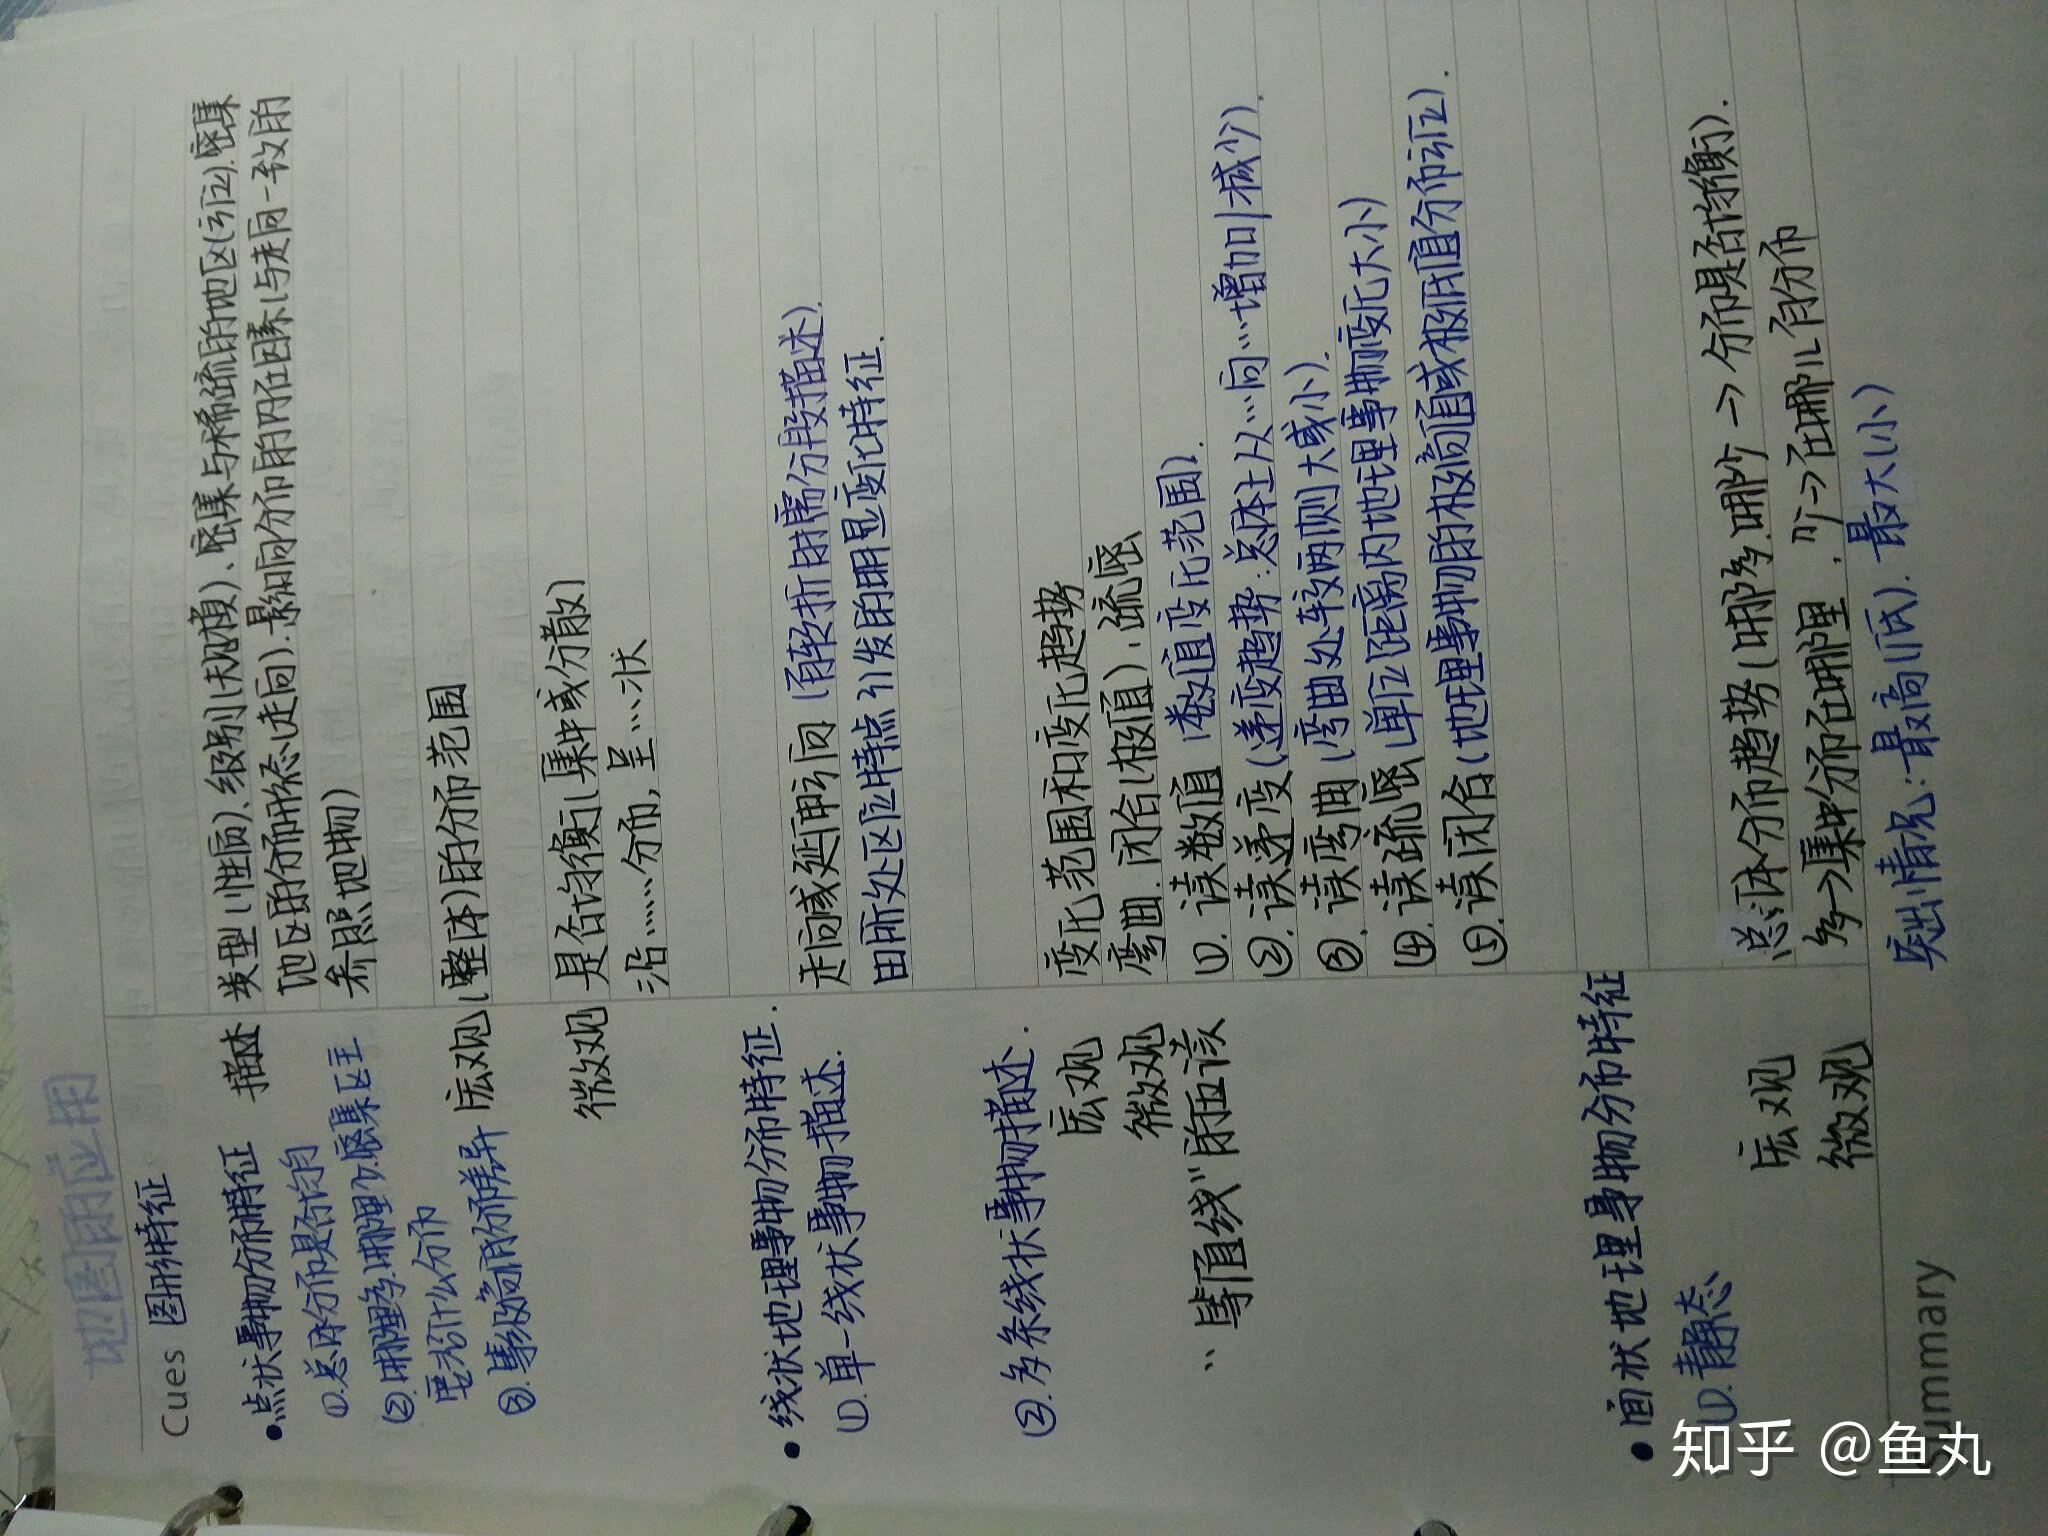 地图的应用
Cues 图the特征
点状事物分布特征 描述
①.总体分布是否均匀
②.哪里多.哪里少.密集区主
要沿什么分布
③.等级高低分布差异
宏观
微观
类型(性质)、级别(规模)、密集与稀疏的地区(方位).密集
地区的分布形态(走向).影响分布的内在因素(与走向一致的
参照地物)
(整体)的分布范围
是否均衡(集中或分散)
沿……分布,呈…状
线状地理事物分布特征.
①.单一线状事物描述.
走向或延伸方向(有转折时需分段描述).
因所处区位特点引发的明显变化特征.
②.多条线状事物描述.
宏观 变化范围和变化趋势
微观 弯曲.闭合(极值)、疏密
“等值线”的应该
①.读数值(数值变化范围).
②.读递变(递变趋势:总体上从…向…增加/减少).
③.读弯曲(弯曲处较两侧大或小).
④.读疏密(单位距离内地理事物变化大小)
⑤.读闭合(地理事物的极高值或极低值分布方位).
面状地理事物分布特征
①.静态
宏观 总体分布趋势(哪多.哪少→分布是否均衡).
微观 多→集中分布在哪里.少→在哪儿有分布
突出情况:最高(低).最大(小)
Summary
知乎 @鱼丸